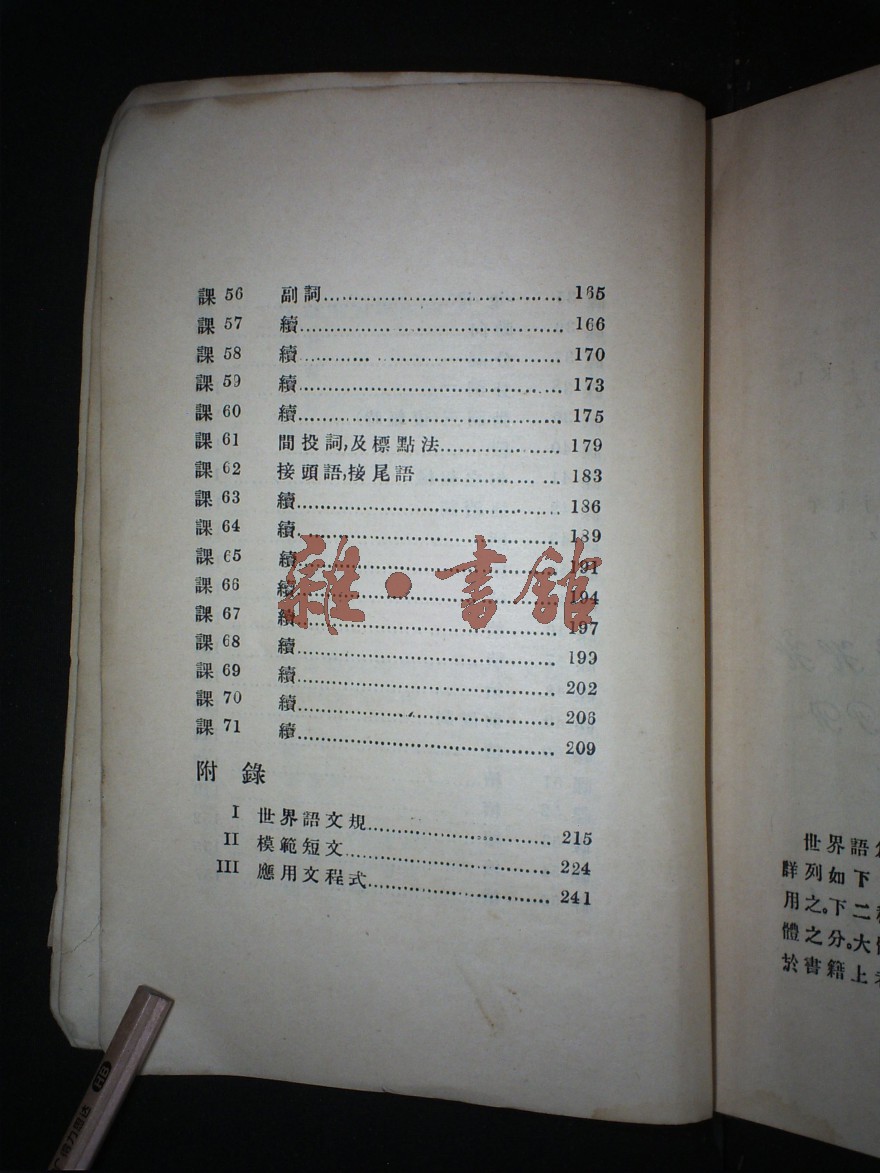 課 56 副詞 165
課 57 續 166
課 58 續 170
課 59 續 173
課 60 續 175
課 61 間投詞,及標點法 179
課 62 接頭語,接尾語 183
課 63 續 186
課 64 續 189
課 65 續 191
課 66 續 194
課 67 續 197
課 68 續 199
課 69 續 202
課 70 續 206
課 71 續 209
附錄
I 世界語文規 215
II 模範短文 224
III 應用文程式 241
雜·書館
世界語
詳列如下
用之。下二
體之分。大
於書籍上
HB